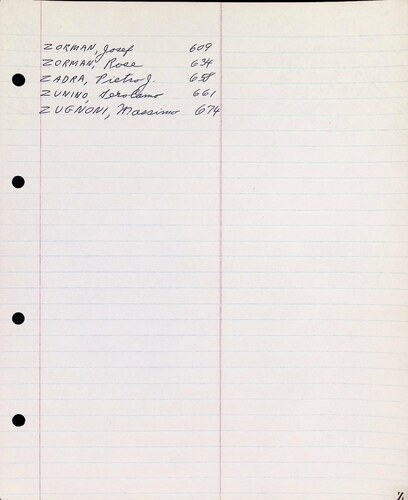 ZORMAN, Josef 609
ZORMAN, Rose 634
ZADRA, Pietro J. 658
ZUNINO, Gerolamo 661
ZUGNONI, Massimo 674